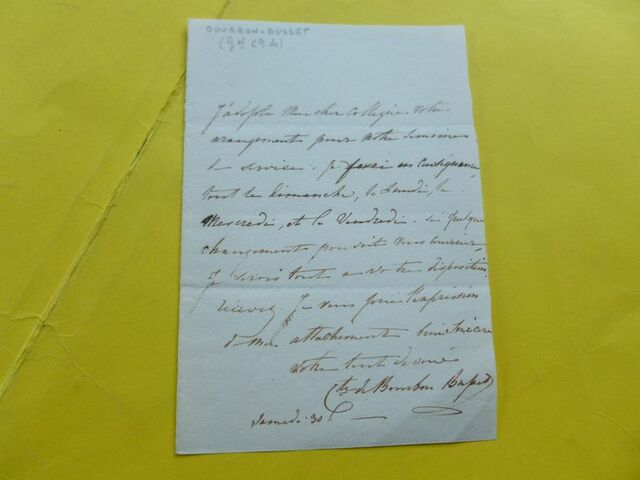 BOURBON-BUSSET
(Gal Cte de)
J'adopte Mon cher Collegue votre
arangements pour notre Semaine
de service. Je ferai en Conséquence
tout le Dimanche, le Lundi, le
Mercredi, et le Vendredi. Si quelque
changements pouvoit vous convenir
Je serois tout a votre disposition
recevez Je vous prie l'expression
de Mon attachement bien Sincere
votre tout devoué
Cte de Bourbon Busset
Samedi 30